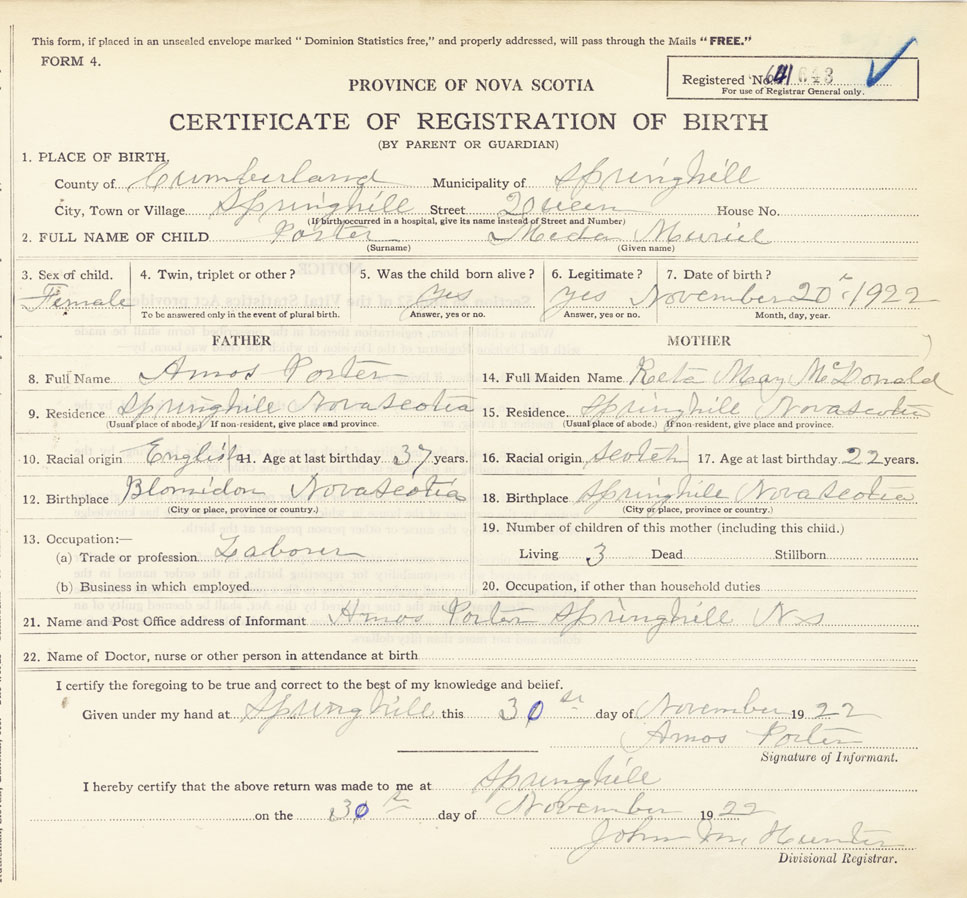 This form, if placed in an unsealed envelope marked "Dominion Statistics free," and properly addressed, will pass through the Mails "FREE."
FORM 4.
Registered No. 643
For use of Registrar General only.
PROVINCE OF NOVA SCOTIA
CERTIFICATE OF REGISTRATION OF BIRTH
(BY PARENT OR GUARDIAN)
1. PLACE OF BIRTH,
County of Cumberland Municipality of Springhill
City, Town or Village Springhill Street Queen House No.
(If birth occurred in a hospital, give its name instead of Street and Number)
2. FULL NAME OF CHILD Porter Meda Muriel
(Surname) (Given name)
3. Sex of child. 4. Twin, triplet or other? 5. Was the child born alive? 6. Legitimate? 7. Date of birth?
Female yes yes November 20 1922
To be answered only in the event of plural birth. Answer, yes or no. Answer, yes or no. Month, day, year.
FATHER MOTHER
8. Full Name Amos Porter 14. Full Maiden Name Reta May McDonald
9. Residence Springhill Nova Scotia 15. Residence. Springhill Nova Scotia
(Usual place of abode.) If non-resident, give place and province. (Usual place of abode.) If non-resident, give place and province.
10. Racial origin English 11. Age at last birthday 37 years. 16. Racial origin Scotch 17. Age at last birthday 22 years.
12. Birthplace Blomidon Nova Scotia 18. Birthplace Springhill Nova Scotia
(City or place, province or country.) (City or place, province or country.)
19. Number of children of this mother (including this child.)
13. Occupation:—
(a) Trade or profession Laborer Living 3 Dead Stillborn
(b) Business in which employed 20. Occupation, if other than household duties
21. Name and Post Office address of Informant Amos Porter Springhill N s
22. Name of Doctor, nurse or other person in attendance at birth
I certify the foregoing to be true and correct to the best of my knowledge and belief.
Given under my hand at Springhill this 30 day of November 1922
Amos Porter
Signature of Informant.
I hereby certify that the above return was made to me at Springhill
on the 30 day of November 1922
John M Hunter
Divisional Registrar.